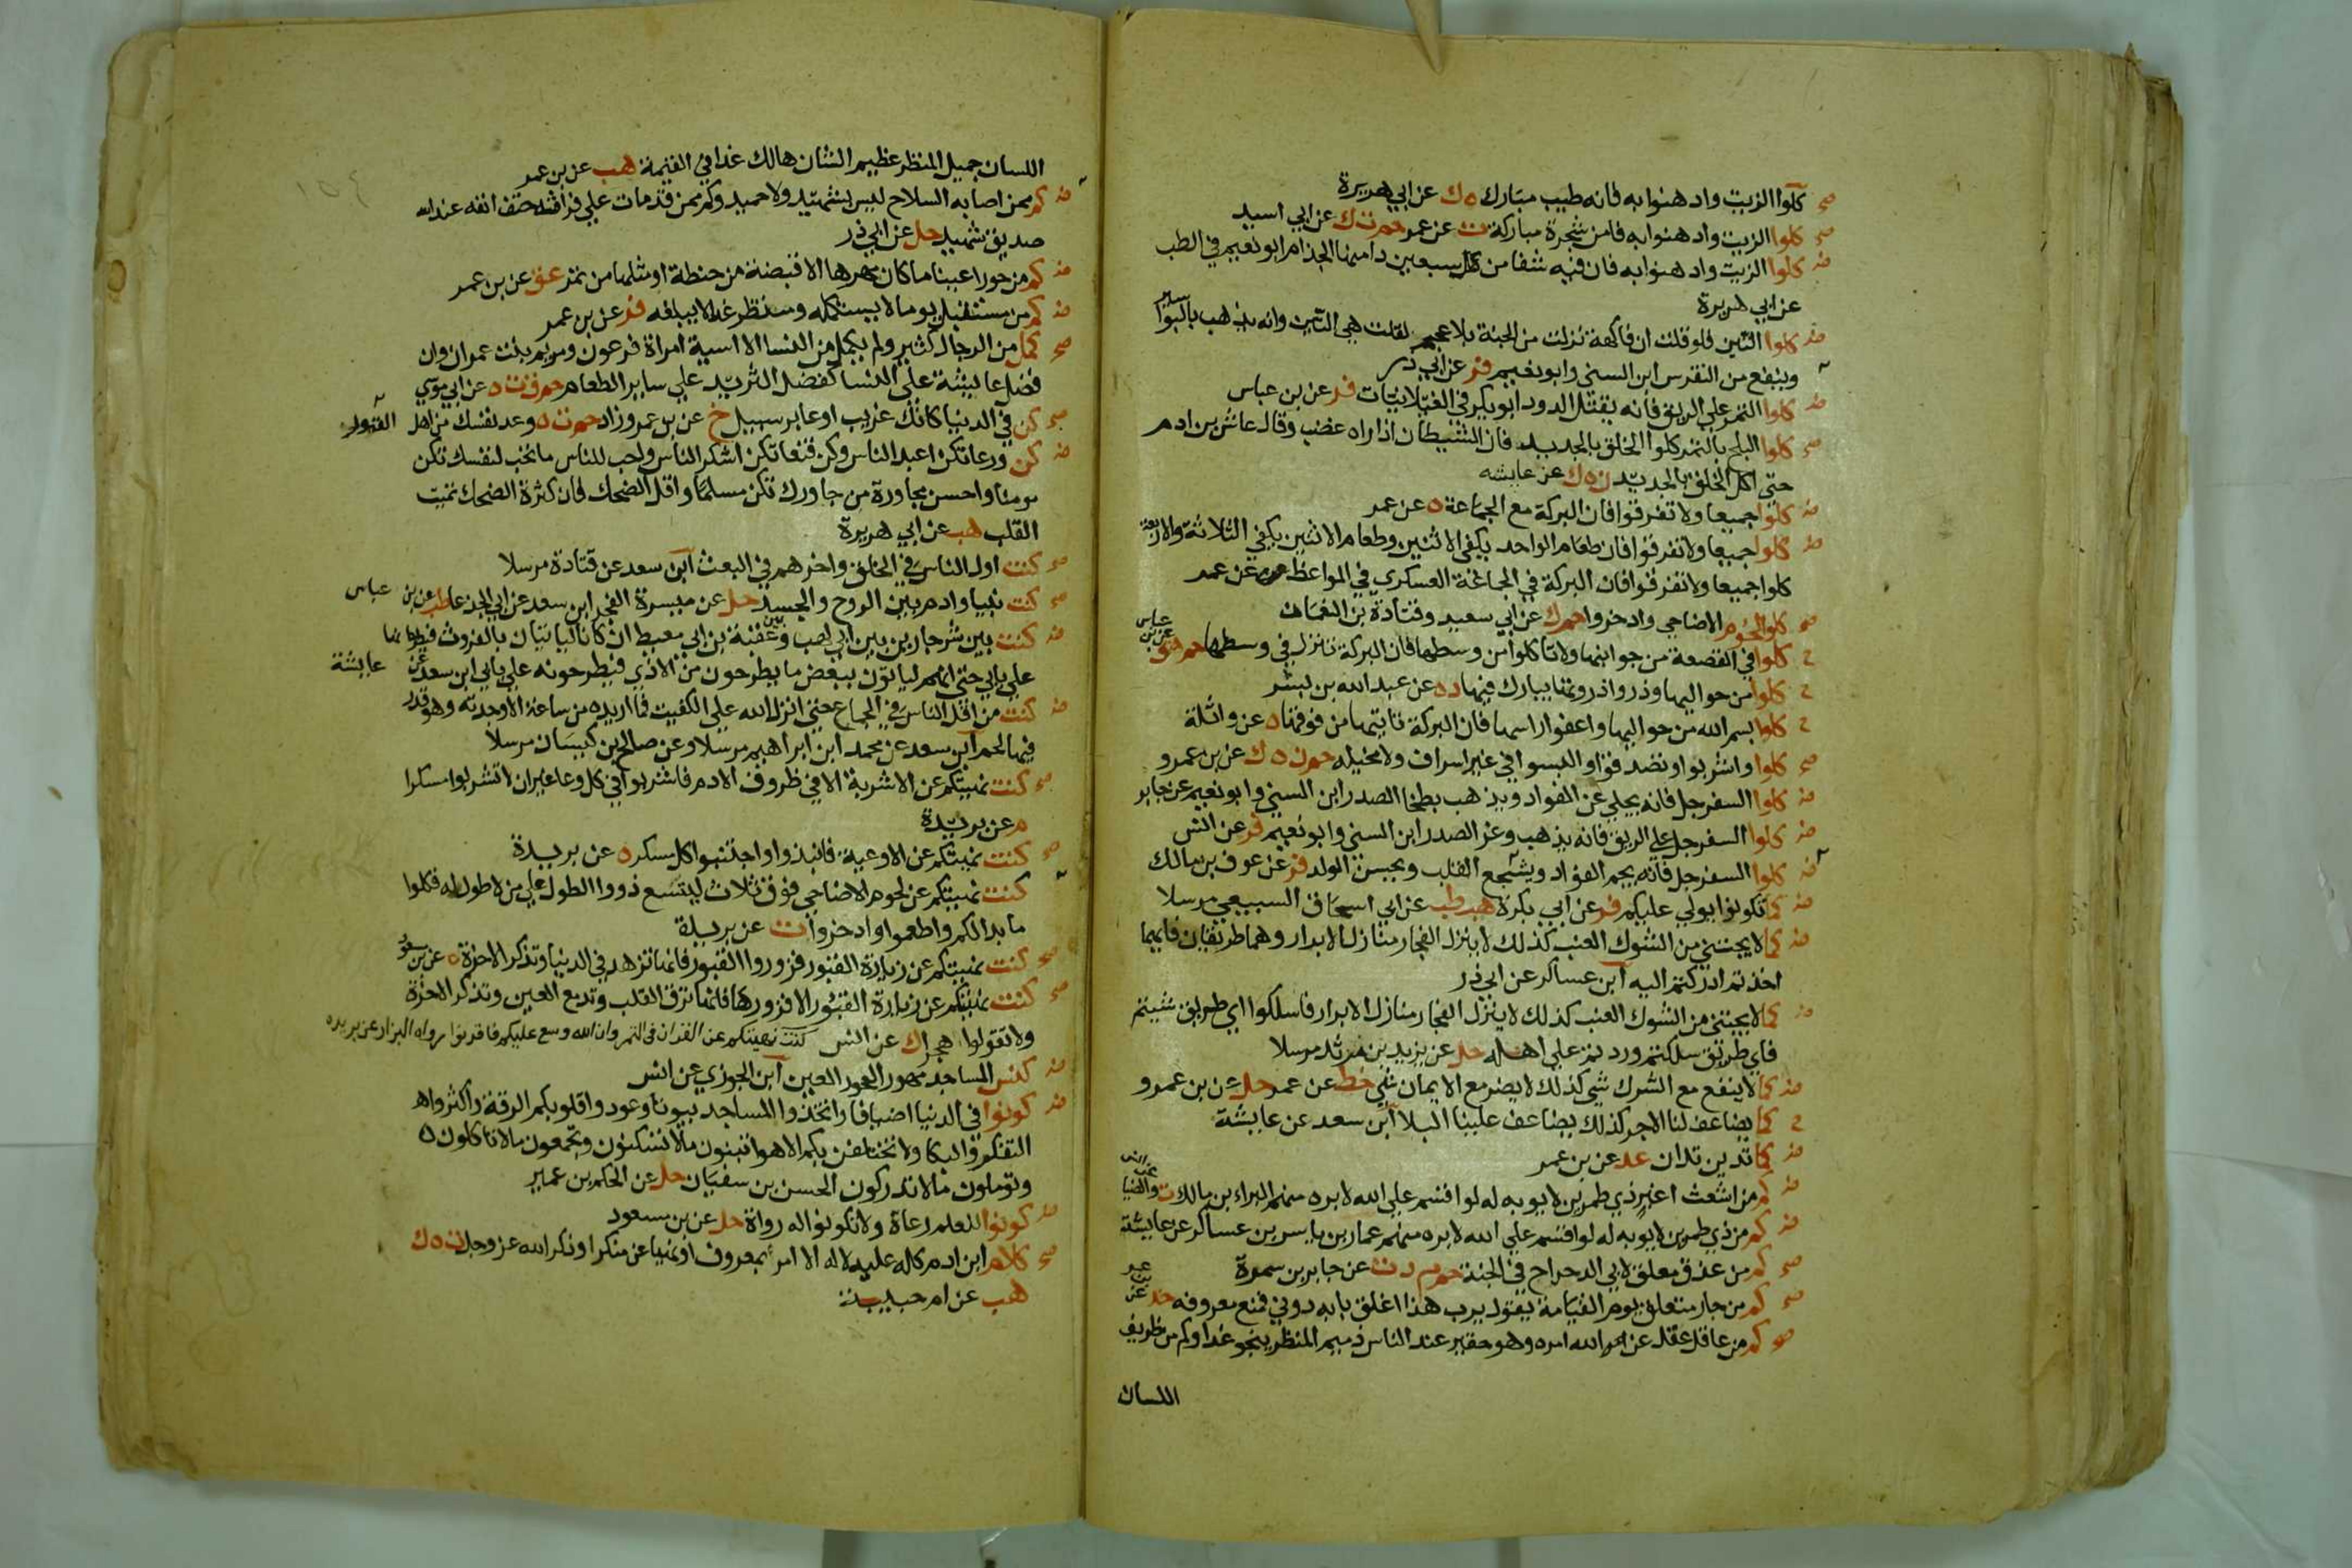 كلوا الزيت وادهنوا به فانه طيب مبارك ه ك عن ابي هريرة
كلوا الزيت وادهنوا به فامن شجرة مباركة ت عن عمر حم ت ك عن ابي اسيد
كلوا الزيت وادهنوا به فان فيه شفا من كل سبعين دا منها الجذام ابو نعيم في الطب
عن ابي هريرة
كلوا التين فلو قلت ان فاكهة نزلت من الجنة بلا عجم لقلت هي التين وانه يذهب بالبواسير
وينفع من النقرس ابن السني وابو نعيم فر عن ابي ذر
كلوا التمر علي الريق فانه يقتل الدود ابو بكر في الغيلانيات فر عن بن عباس
كلوا البلح بالتمر كلوا الخلق بالجديد فان الشيطان اذا راه غضب وقال عاش بن ادم
حتي اكل الخلق بالجديد ن ه ك عن عايشه
كلوا جميعا ولا تفرقوا فان البركة مع الجماعة ه عن عمر
كلوا جميعا ولا تفرقوا فان طعام الواحد يكفي الاثنين وطعام الاثنين يكفي الثلاثة والاربعة
كلوا جميعا ولا تفرقوا فان البركة في الجماعة العسكري في المواعظ عن عمر
كلوا لحوم الاضاحي وادخروا حم ك عن ابي سعيد وقتادة بن النعمان
كلوا في القصعة من جوانبها ولا تاكلوا من وسطها فان البركة تنزل في وسطها حم هق عن بن عباس
كلوا من حواليها وذروا ذروتها يبارك فيها د ه عن عبد الله بن بسر
كلوا بسم الله من حواليها واعفوا راسها فان البركة تاتيها من فوقها ه عن واثلة
كلوا واشربوا وتصدقوا والبسوا في غير اسراف ولا مخيله حم ن ه ك عن بن عمرو
كلوا السفرجل فانه يجلي عن الفواد ويذهب بطخا الصدر ابن السني وابو نعيم عن جابر
كلوا السفرجل علي الريق فانه يذهب وغر الصدر ابن السني وابو نعيم فر عن انس
كلوا السفرجل فانه يجم الفؤاد ويشجع القلب ويحسن الولد فر عن عوف بن مالك
كما تكونوا يولي عليكم فر عن ابي بكرة هب طب عن ابي اسحاق السبيعي مرسلا
كما لا يجتني من الشوك العنب كذلك لا ينزل الفجار منازل الابرار وهما طريقان فايهما
اخذتم ادركتم اليه ابن عساكر عن ابي ذر
كما لا يجتني من الشوك العنب كذلك لا ينزل الفجار منازل الابرار فاسلكوا اي طريق شيتم
فاي طريق سلكتم وردتم علي اهله حل عن يزيد بن مرثد مرسلا
كما لا ينفع مع الشرك شي كذلك لا يضر مع الايمان شي خط عن عمر حل عن بن عمرو
كما يضاعف لنا الاجر كذلك يضاعف علينا البلا ابن سعد عن عايشة
كما تدين تدان عد عن بن عمر
كم من اشعث اغبر ذي طمرين لا يوبه له لو اقسم علي الله لابره منهم البراء بن مالك ت والضيا عن انس
كم من ذي طمرين لا يوبه له لو اقسم علي الله لابره منهم عمار بن ياسر بن عساكر عن عايشة
كم من عذق معلق لابي الدحداح في الجنة حم م د ت عن جابر بن سمرة
كم من جار متعلق يوم القيامة يقول يرب هذا اغلق بابه دوني فمنع معروفه خد عن بن عمر
كم من عاقل عقل عن الله امره وهو حقير عند الناس ذميم المنظر ينجو غدا وكم من ظريف
اللسان
اللسان جميل المنظر عظيم الشان هالك غدا في القيمة هب عن بن عمر
كم ممن اصابه السلاح ليس بشهيد ولا حميد وكم ممن قد مات علي فراشه حتف انفه عند الله
صديق شهيد حل عن ابي ذر
كم من حورا عينا ما كان مهرها الا قبضة من حنطة او مثلها من تمر عق عن بن عمر
كم من مستقبل يوما لا يستكمله ومنتظر غدا لا يبلغه فر عن بن عمر
كمل من الرجال كثير ولم يكمل من النسا الا اسية امراة فرعون ومريم بنت عمران وان
فضل عايشة علي النسا كفضل الثريد علي ساير الطعام حم ق ت ه عن ابي موسي
كن في الدنيا كانك غريب او عابر سبيل خ عن بن عمر وزاد حم ت ه وعد نفسك من اهل القبور
كن ورعا تكن اعبد الناس وكن قنعا تكن اشكر الناس واحب للناس ما تحب لنفسك تكن
مومنا واحسن مجاورة من جاورك تكن مسلما واقل الضحك فان كثرة الضحك تميت
القلب هب عن ابي هريرة
كنت اول الناس في الخلق واخرهم في البعث ابن سعد عن قتادة مرسلا
كنت نبيا وادم بين الروح والجسد حل عن ميسرة الفجر ابن سعد عن ابي الجدعا طب عن بن عباس
كنت بين شر جارين بين ابي لهب وبين عقبة بن ابي معيط ان كانا لياتيان بالفروث فيطرحانها
علي بابي حتي انهم لياتون ببعض ما يطرحون من الاذي فيطرحونه علي بابي ابن سعد عن عايشة
كنت من اقل الناس في الجماع حتي انزل الله علي الكفيت فما اريده من ساعة الا وجدته وهو قدر
فيها لحم ابن سعد عن محمد ابن ابراهيم مرسلا وعن صالح بن كيسان مرسلا
كنت نهيتكم عن الاشربة الا في ظروف الادم فاشربوا في كل وعا غير ان لا تشربوا مسكرا
م عن بريدة
كنت نهيتكم عن الاوعية فانبذوا واجتنبوا كل مسكر ه عن بريدة
كنت نهيتكم عن لحوم الاضاحي فوق ثلاث ليتسع ذووا الطول علي من لا طول له فكلوا
ما بدا لكم واطعموا وادخروا ت عن بريدة
كنت نهيتكم عن زيارة القبور فزوروا القبور فانها تزهد في الدنيا وتذكر الاخرة ه عن بن مسعود
كنت نهيتكم عن زيارة القبور الا فزورها فانها ترق القلب وتدمع العين وتذكر الاخرة
ولا تقولوا هجرا ك عن انس كنت نهيتكم عن القران في التمر وان الله وسع عليكم فاقرنوا رواه البزار عن بريده
كنس المساجد مهور الحور العين ابن الجوزي عن انس
كونوا في الدنيا اضيافا واتخذوا المساجد بيوتا وعودوا قلوبكم الرقة واكثروا
التفكر والبكا ولا تختلفن بكم الاهوا تبنون ما لا تسكنون وتجمعون ما لا تاكلون
وتوملون ما لا تدركون الحسن بن سفيان حل عن الحكم بن عمير
كونوا للعلم رعاة ولا تكونوا له رواة حل عن بن مسعود
كلام ابن ادم كله عليه لا له الا امر بمعروف او نهيا عن منكر او ذكر الله عز وجل ت ه ك
هب عن ام حبيبة